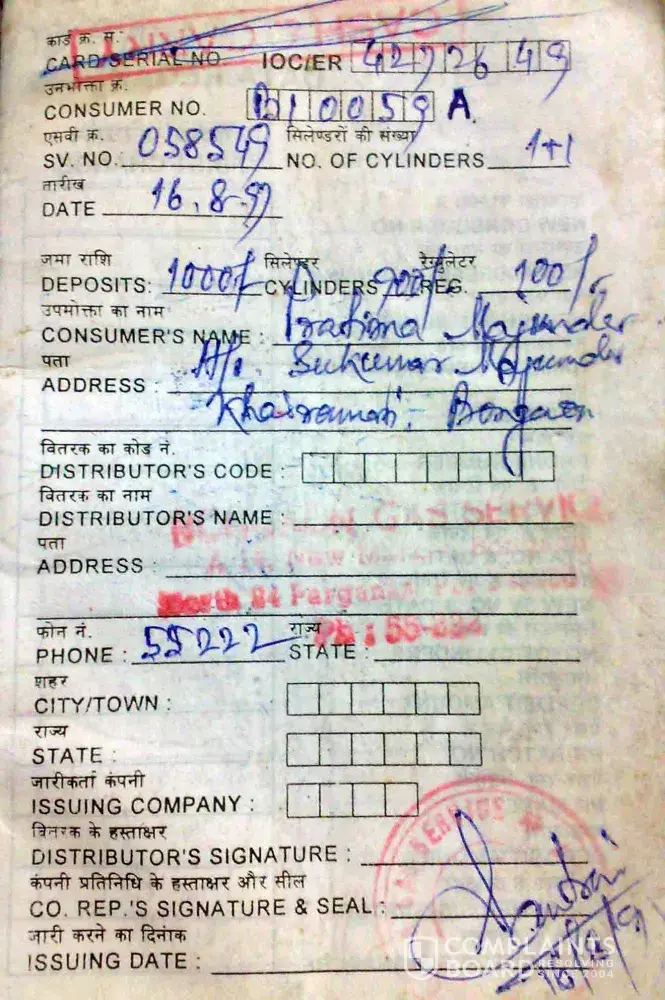 कार्ड क्र. सं.
CARD SERIAL NO. IOC/ER 4272649
उनभोक्ता क्र.
CONSUMER NO. B10059 A.
एसवी क्र. सिलेण्डरों की संख्या
SV. NO. 058549 NO. OF CYLINDERS 1+1
तारीख
DATE 16.8.97
जमा राशि सिलेण्डर रेग्युलेटर
DEPOSITS: 1000/- CYLINDERS 900/- REG. 100/-
उपमोक्ता का नाम
CONSUMER'S NAME : Pratima Majumder
पता
ADDRESS : Sukumar Majumder
Bongaon
वितरक का कोड नं.
DISTRIBUTOR'S CODE :
वितरक का नाम
DISTRIBUTOR'S NAME : GAS SERVICE
पता
ADDRESS :
North 24 Parganas
फोन नं. राज्य Ph : 55-
PHONE : 55222 STATE :
शहर
CITY/TOWN :
राज्य
STATE :
जारीकर्ता कंपनी
ISSUING COMPANY :
वितरक के हस्ताक्षर
DISTRIBUTOR'S SIGNATURE :
कंपनी प्रतिनिधि के हस्ताक्षर और सील
CO. REP.'S SIGNATURE & SEAL :
जारी करने का दिनांक
ISSUING DATE :
COMPLAINTS
BOARD RESOLVING SINCE 2004